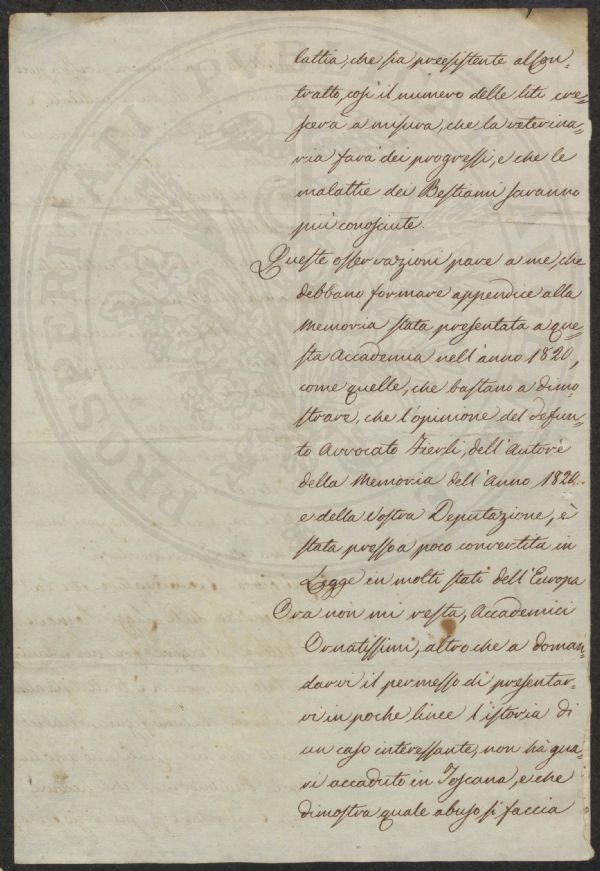 lattia, che sia preesistente al Con=
tratto, così il numero delle liti cre=
scerà a misura, che la veterina=
ria farà dei progressi, e che le
malattie dei Bestiami saranno
più conosciute.
Queste osservazioni pare a me, che
debbano formare appendice alla
Memoria stata presentata a que=
sta Accademia nell'anno 1820,
come quelle, che bastano a dimo=
strare, che l'opinione del defun=
to Avvocato Fierli, dell'Autore
della Memoria dell'Anno 1820.
e della Vostra Deputazione, è
stata presso a poco convertita in
Legge in molti stati dell'Europa
Ora non mi resta, Accademici
Ornatissimi, altro che a doman=
darvi il permesso di presentar=
vi in poche linee l'istoria di
un caso interessante, non hà gua=
ri accaduto in Toscana, e che
dimostra quale abuso si faccia
PROSPERITATI PVBLICAE